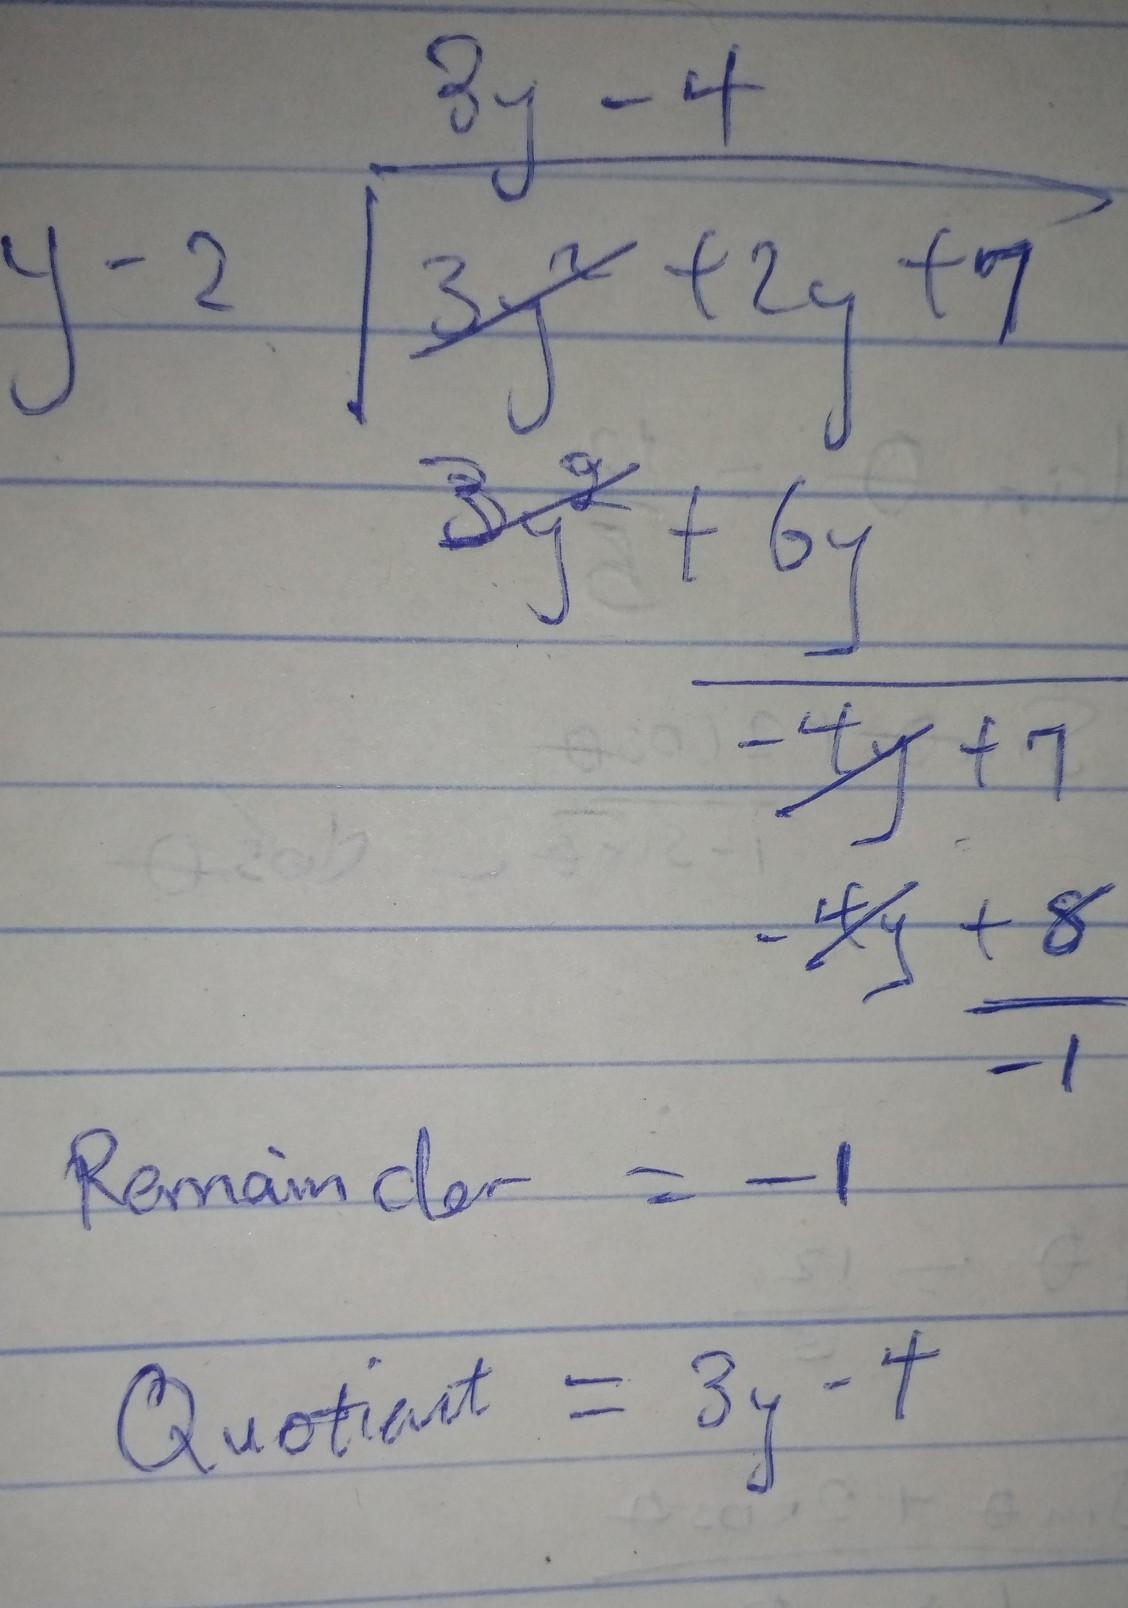 3y - 4
y - 2 3y² + 2y + 7
3y² + 6y
- 4y + 7
- 4y + 8
- 1
Remainder = - 1
Quotient = 3y - 4